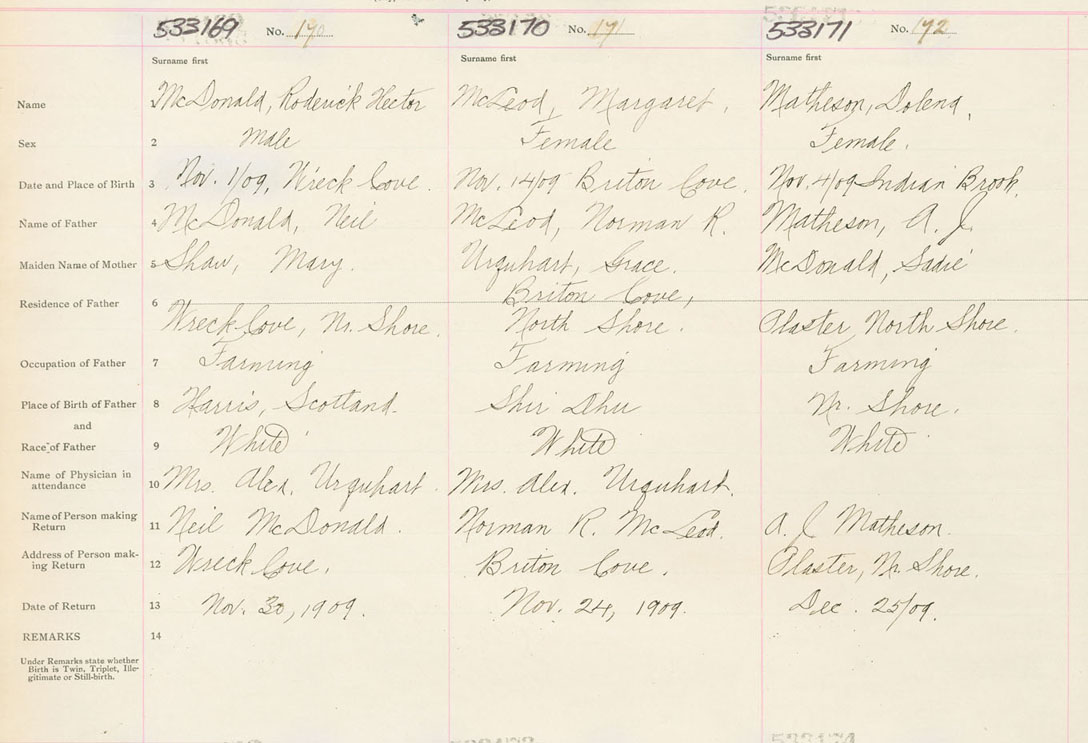 533169 No. 170 533170 No. 171 533171 No. 172
Surname first Surname first Surname first
Name 1 McDonald, Roderick Hector McLeod, Margaret. Matheson, Dolena,
Sex 2 Male Female Female.
Date and Place of Birth 3 Nov. 1/09, Wreck Cove. Nov. 14/09 Briton Cove. Nov. 4/09 Indian Brook.
Name of Father 4 McDonald, Neil McLeod, Norman R. Matheson, A. J.
Maiden Name of Mother 5 Shaw, Mary. Urquhart, Grace. McDonald, Sadie
Briton Cove,
Residence of Father 6 Wreck Cove, Nr. Shore. North Shore. Plaster, North Shore.
Occupation of Father 7 Farming Farming Farming
Place of Birth of Father 8 Harris, Scotland. Shir Dhu Nr. Shore.
and
Race of Father 9 White White White
Name of Physician in
attendance 10 Mrs. Alex. Urquhart. Mrs. Alex. Urquhart.
Name of Person making
Return 11 Neil McDonald. Norman R. McLeod. A. J. Matheson.
Address of Person mak-
ing Return 12 Wreck Cove. Briton Cove. Plaster, Nr. Shore.
Date of Return 13 Nov. 30, 1909. Nov. 24, 1909. Dec. 25/09.
REMARKS 14
Under Remarks state whether
Birth is Twin, Triplet, Ille-
gitimate or Still-birth.